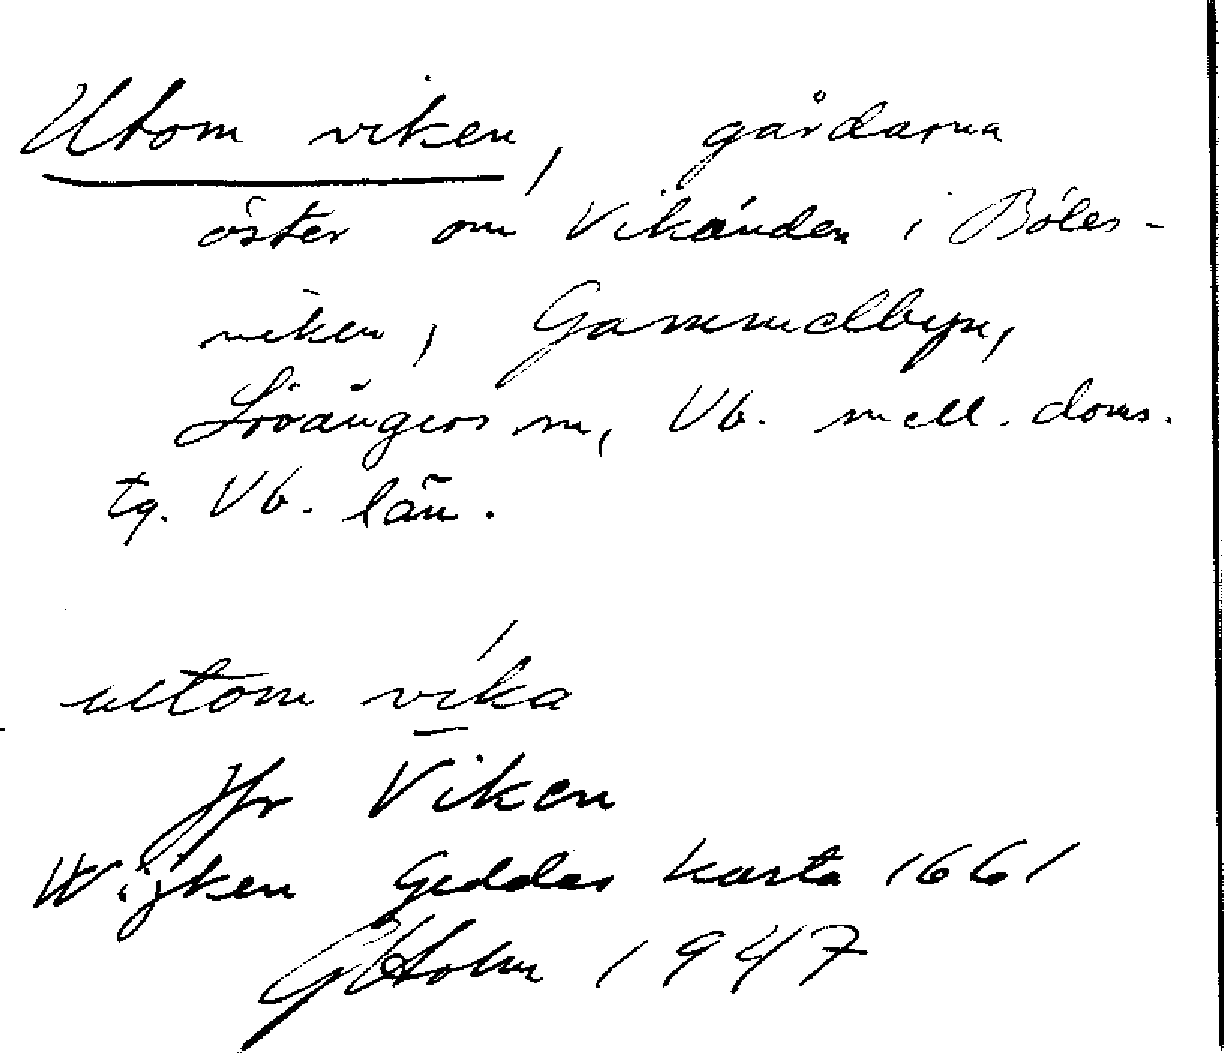 Utom viken, gårdarna
öster om Vikånden i Böles-
viken, Gammelbyn,
Lövångers sn, Vb. mell. doms.
tg. Vb. län.
utom vika
Jfr Viken
Wijken Geddas karta 1661
Holm 1947